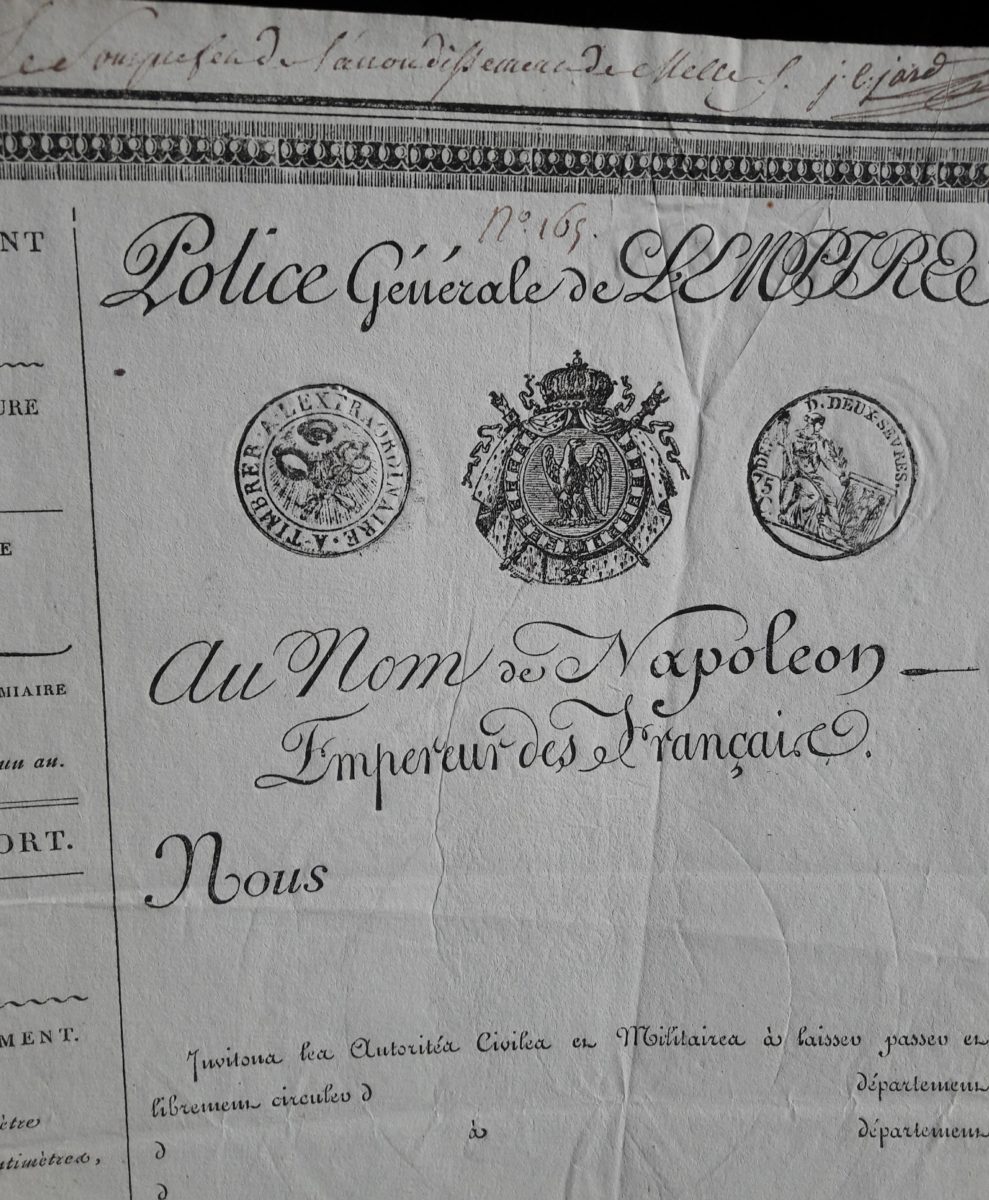 Le Souprefen de l'arrondissement de Melle J. j. e. jard
N.º 165.
Police Générale de L'EMPIRE
A TIMBRER A L'EXTRAORDINAIRE
D. DEUX-SEVRES.
75 DE
Au Nom de Napoleon
Empereur des Français.
Nous
Invitons les Autorités Civiles et Militaires à laisser passer et
librement circuler d département
d à département
d
NT
URE
E
MIAIRE
un an.
ORT.
MENT.
ètre
ntimètres,